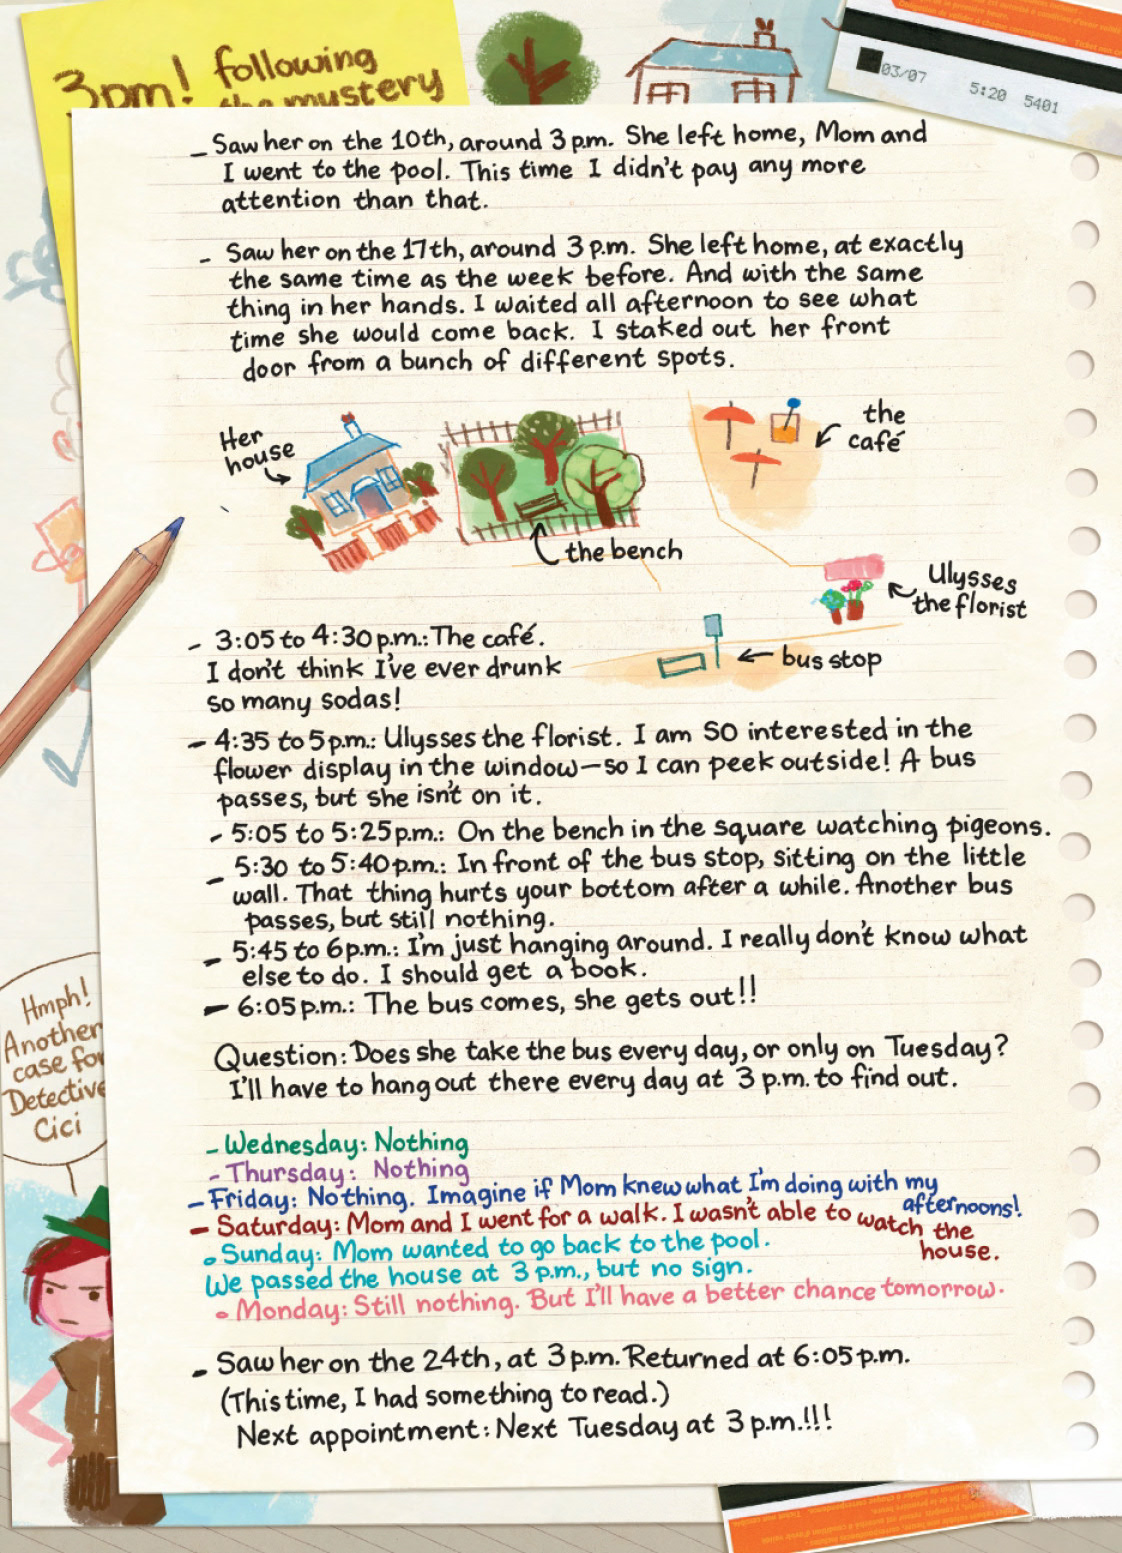 3pm! following
the mystery
03/07 5:20 5401
_ Saw her on the 10th, around 3 p.m. She left home, Mom and
I went to the pool. This time I didn't pay any more
attention than that.
- Saw her on the 17th, around 3 p.m. She left home, at exactly
the same time as the week before. And with the same
thing in her hands. I waited all afternoon to see what
time she would come back. I staked out her front
door from a bunch of different spots.
Her
house
the
café
the bench
Ulysses
the florist
bus stop
- 3:05 to 4:30 p.m.: The café.
I don't think I've ever drunk
so many sodas!
- 4:35 to 5 p.m.: Ulysses the florist. I am SO interested in the
flower display in the window—so I can peek outside! A bus
passes, but she isn't on it.
- 5:05 to 5:25 p.m.: On the bench in the square watching pigeons.
_ 5:30 to 5:40 p.m.: In front of the bus stop, sitting on the little
wall. That thing hurts your bottom after a while. Another bus
passes, but still nothing.
_ 5:45 to 6 p.m.: I'm just hanging around. I really don't know what
else to do. I should get a book.
- 6:05 p.m.: The bus comes, she gets out!!
Question: Does she take the bus every day, or only on Tuesday?
I'll have to hang out there every day at 3 p.m. to find out.
- Wednesday: Nothing
- Thursday: Nothing
- Friday: Nothing. Imagine if Mom knew what I'm doing with my
afternoons!
- Saturday: Mom and I went for a walk. I wasn't able to watch the
house.
• Sunday: Mom wanted to go back to the pool.
We passed the house at 3 p.m., but no sign.
• Monday: Still nothing. But I'll have a better chance tomorrow.
_ Saw her on the 24th, at 3 p.m. Returned at 6:05 p.m.
(This time, I had something to read.)
Next appointment: Next Tuesday at 3 p.m.!!!
Hmph!
Another
case for
Detective
Cici